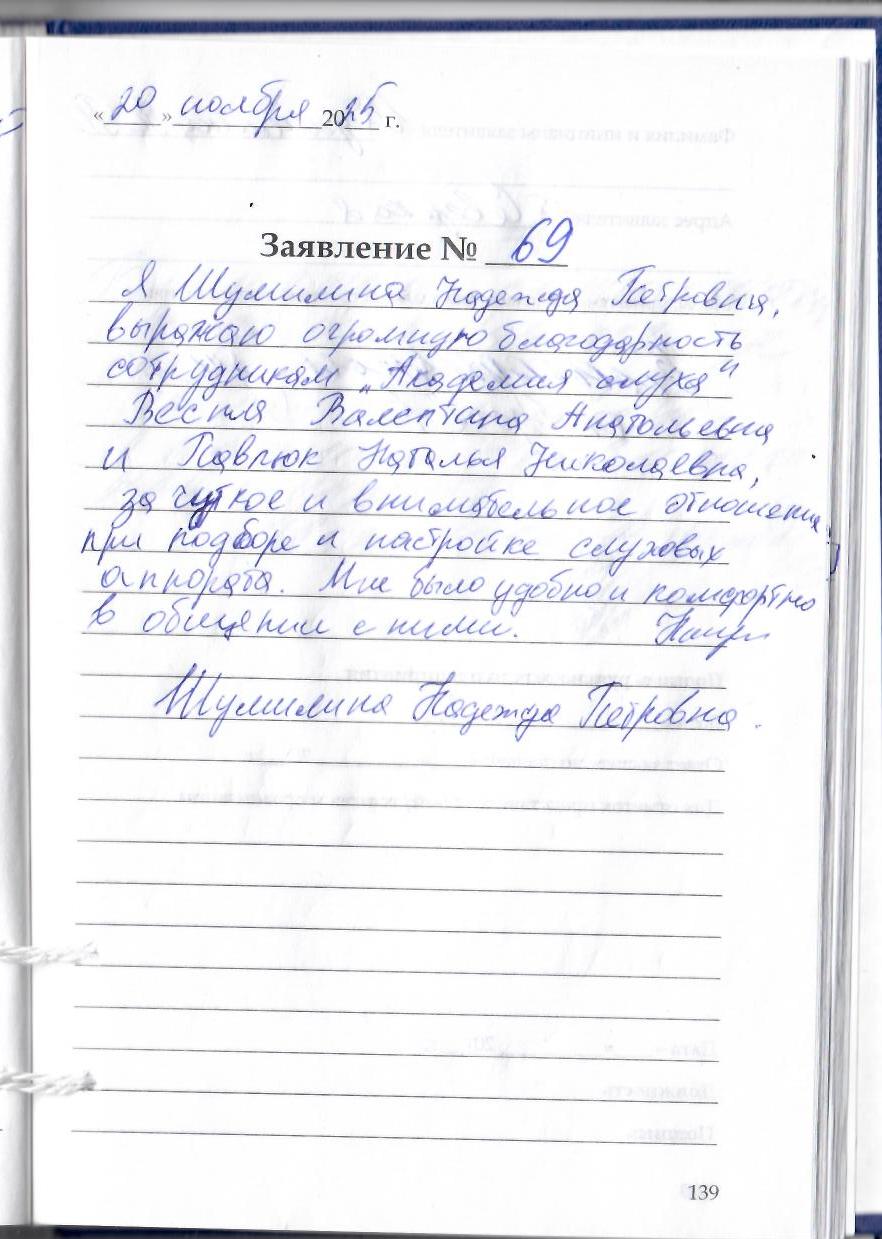 «20» ноября 2025 г.
Заявление № 69
Я Шумилина Надежда Петровна,
выражаю огромную благодарность
сотрудникам „Академия слуха"
Весна Валентина Анатольевна
и Павлюк Наталья Николаевна,
за чуткое и внимательное отношение
при подборе и настройке слуховых
аппарата. Мне было удобно и комфортно
в общении с ними.
Шумилина Надежда Петровна.
139